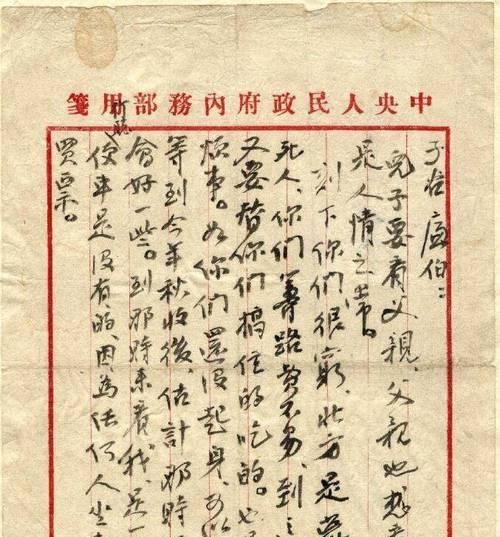 中央人民政府內務部用箋
子谷、廉伯：
兒子要看父親，父親也想
是人情之常。
刻下你們很窮，北方是荒
死人，你們籌路費不易，到
又要替你們搞住的吃的。也
煩事。如你們還沒起身，可以
等到今年秋收後，估計那時
會好一些。到那時來看我，是一
便車是沒有的，因為任何人坐
買票。